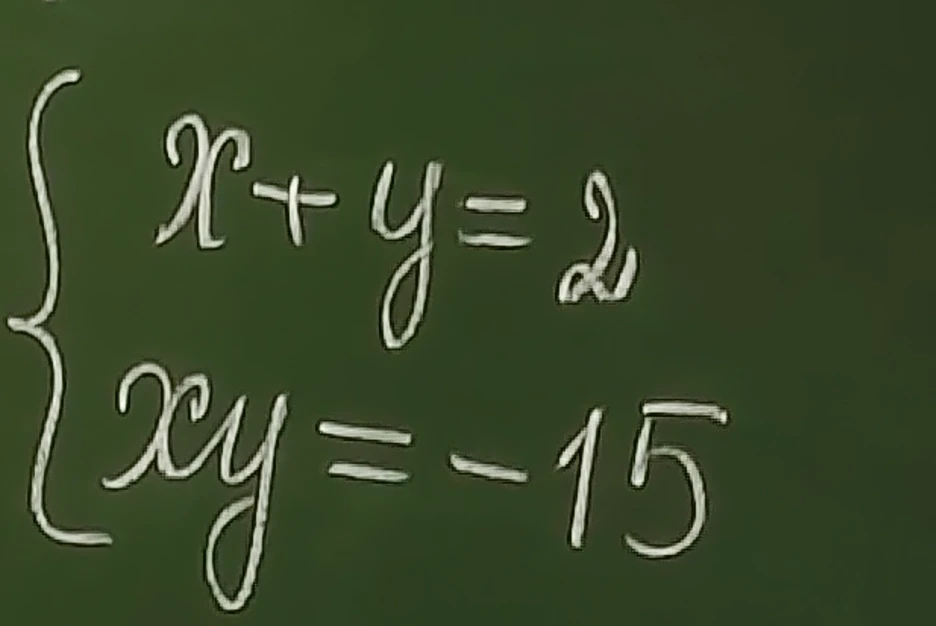 x + y = 2
xy = -15